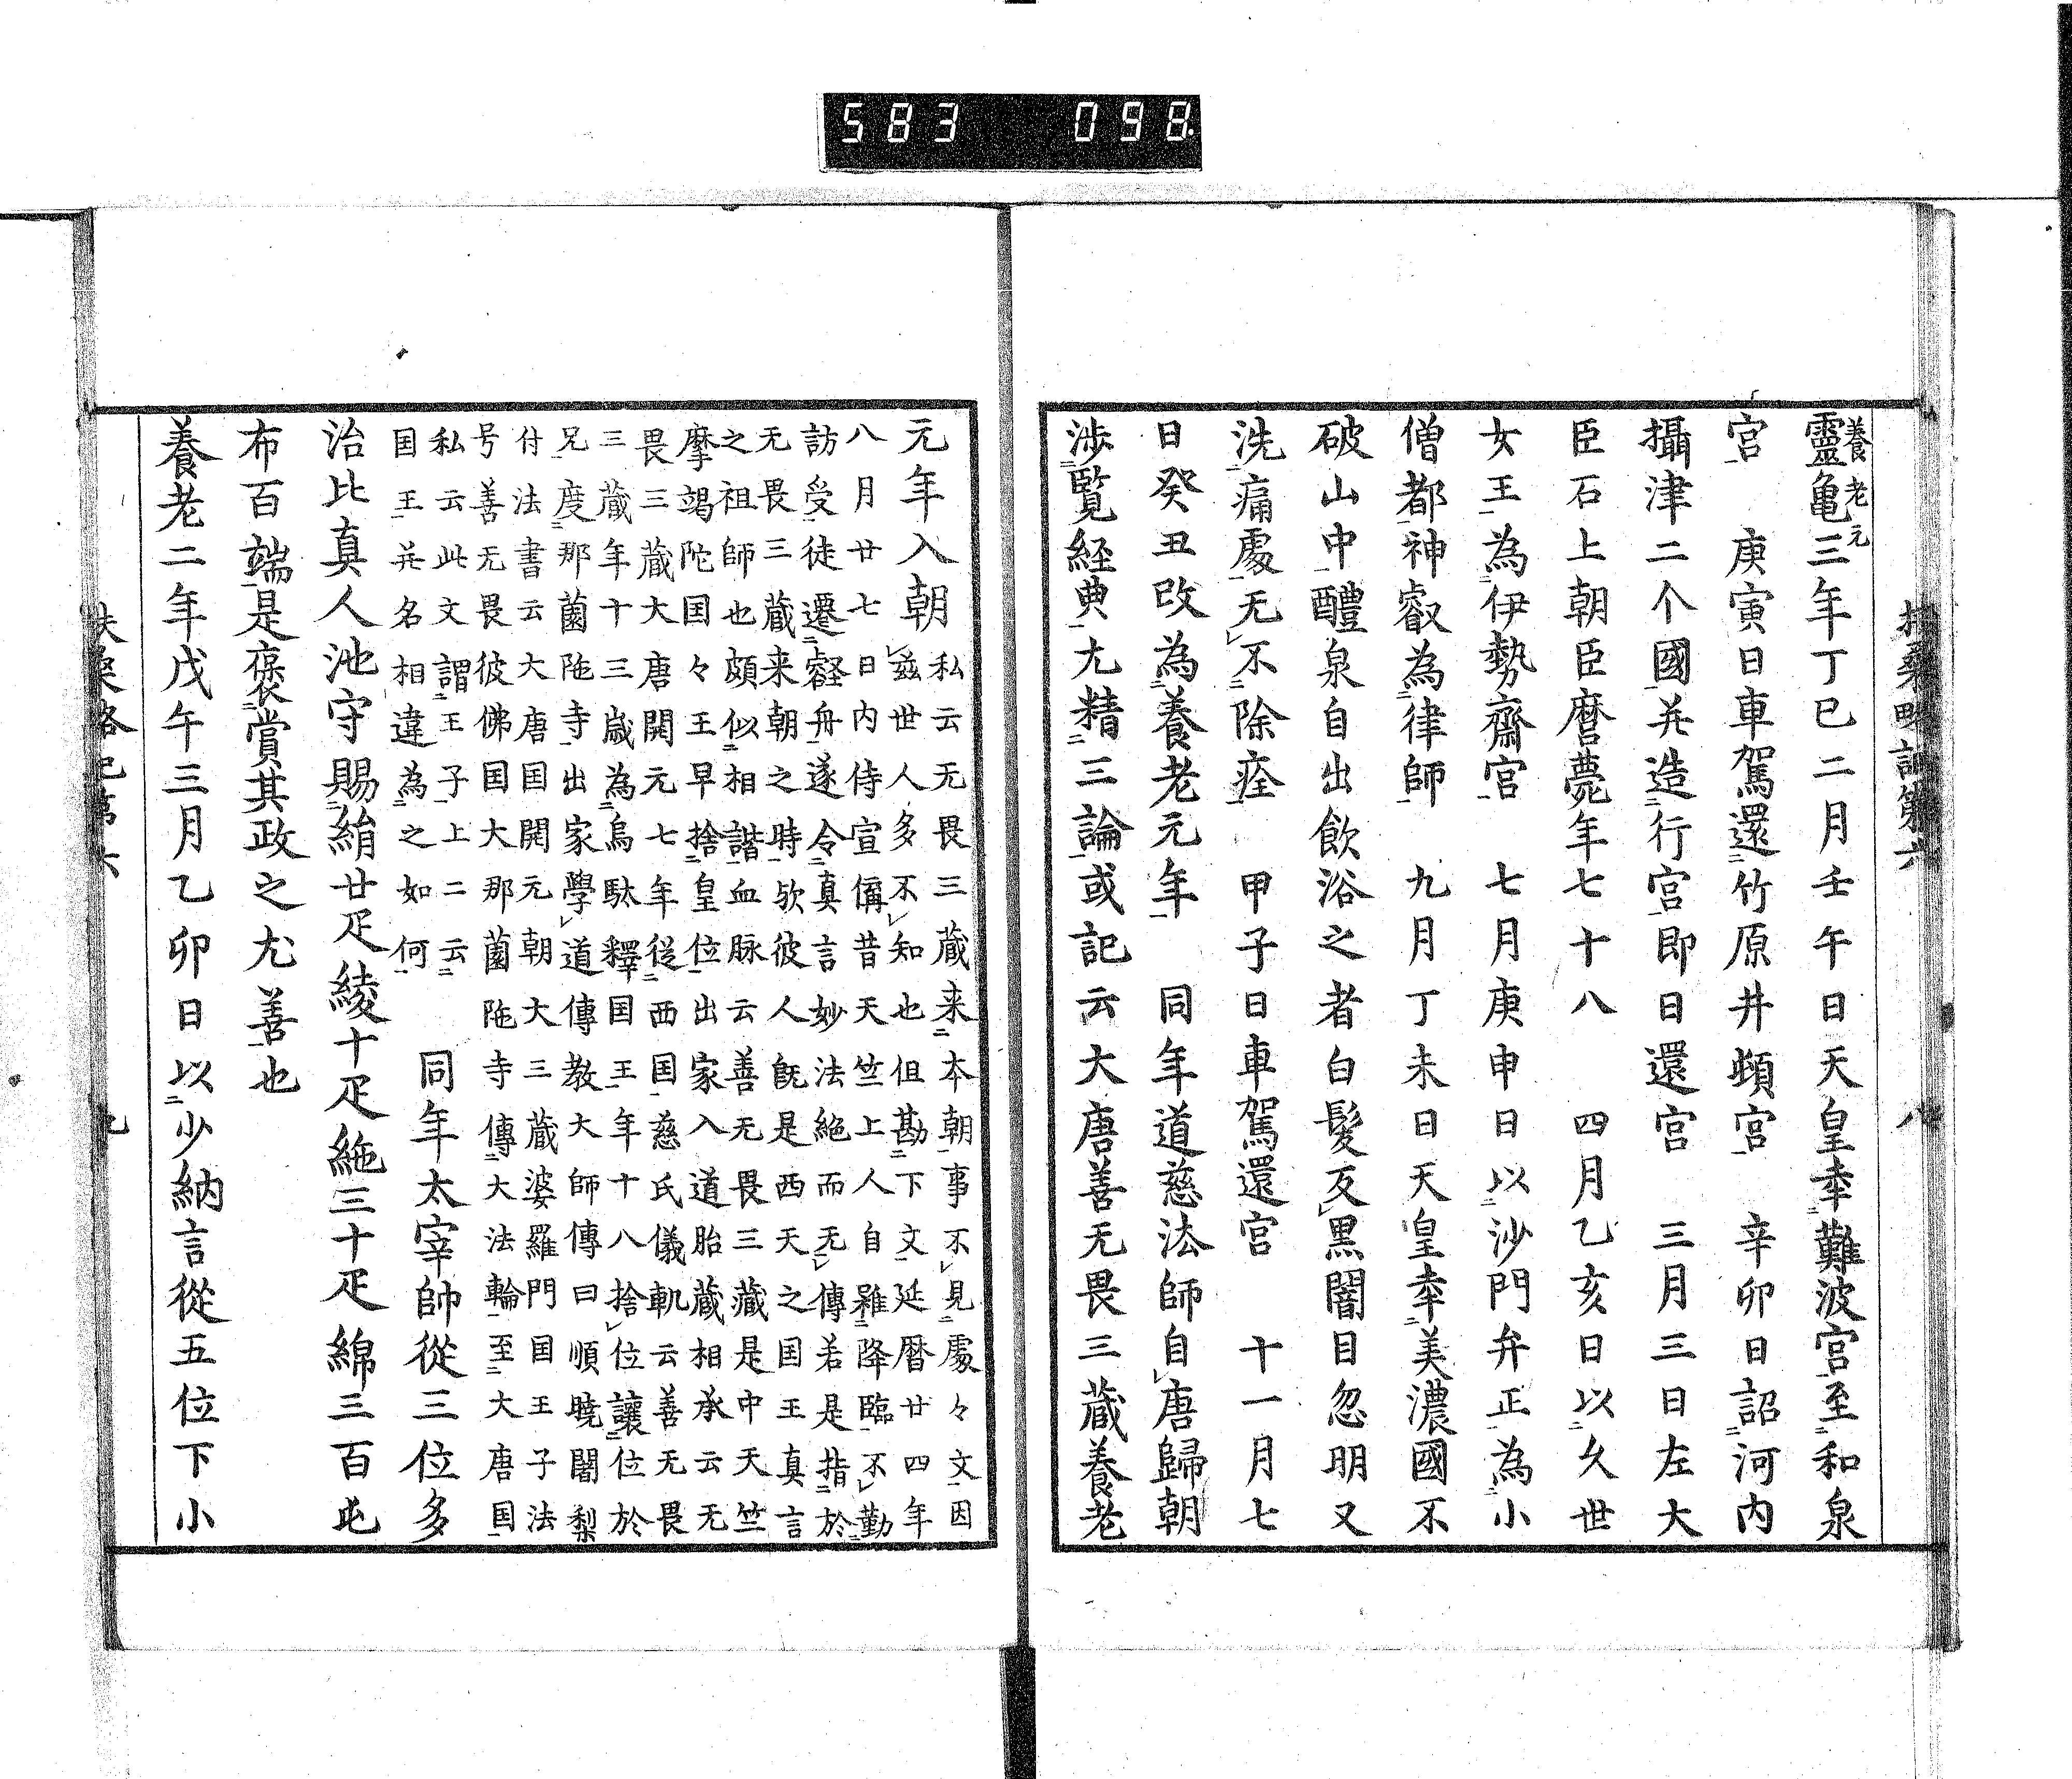 583 098
扶桑略記第六 八
養老元
靈亀三年丁巳二月壬午日天皇幸難波宮至和泉
宮　庚寅日車駕還竹原井頓宮　辛卯日詔河内
攝津二个國并造行宮即日還宮　三月三日左大
臣石上朝臣麿薨年七十八　四月乙亥日以久世
女王為伊勢齋宮　七月庚申日以沙門弁正為小
僧都神叡為律師　九月丁未日天皇幸美濃國不
破山中醴泉自出飲浴之者白髮反黒闇目忽明又
洗痛處无不除痊　甲子日車駕還宮　十一月七
日癸丑改為養老元年　同年道慈法師自唐歸朝
渉覧経典尤精三論或記云大唐善无畏三蔵養老
元年入朝
私云无畏三蔵来本朝事不見處々文因
茲世人多不知也但勘下文延暦廿四年
八月廿七日内侍宣偁昔天竺上人自雖降臨不勤
訪受徒遷壑舟遂令真言妙法絶而无傳若是指於
无畏三蔵来朝之時欤彼人既是西天之国王真言
之祖師也頗似相諧血脉云善无畏三藏是中天竺
摩竭陀国々王早捨皇位出家入道胎蔵相承云无
畏三蔵大唐開元七年従西国慈氏儀軌云善无畏
三蔵年十三歳為烏駄釋国王年十八捨位讓位於
兄度那薗陁寺出家學道傳教大師傳曰順曉闍梨
付法書云大唐国開元朝大三蔵婆羅門国王子法
号善无畏彼佛国大那薗陁寺傳大法輪至大唐国
私云此文謂王子上二云
国王并名相違為之如何
同年太宰帥從三位多
治比真人池守賜絹廿疋綾十疋絁三十疋綿三百屯
布百端是褒賞其政之尤善也
養老二年戊午三月乙卯日以少納言從五位下小
扶桑略記第六 九